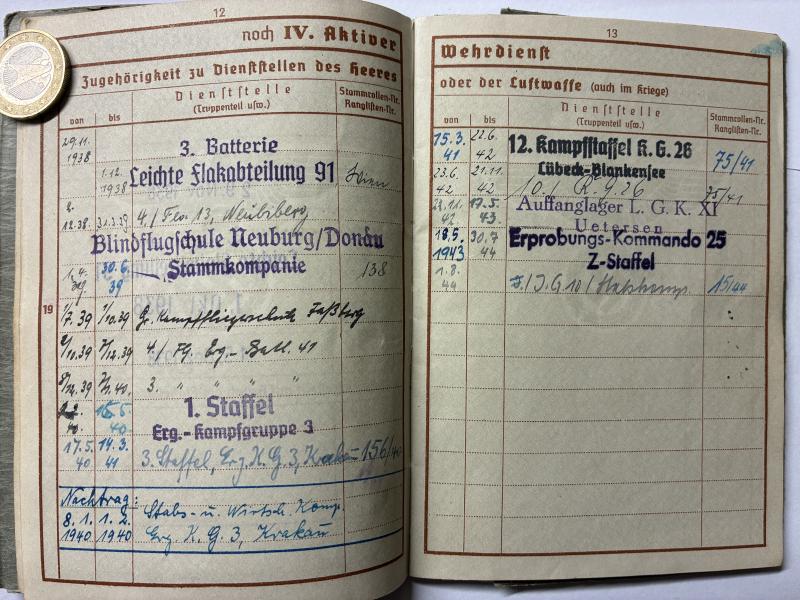 12
noch IV. Aktiver
Zugehörigkeit zu Dienststellen des Heeres
von bis Dienststelle (Truppenteil usw.) Stammrollen-Nr. Ranglisten-Nr.
29.11. 1938 3. Batterie
1.12. 1938 Leichte Flakabteilung 91 Wien
12.38 31.3.39 4./ 13, Neubiberg
Blindflugschule Neuburg/Donau
1.4. 39 30.6. 39 Stammkompanie 138
19
1/7.39 1/10.39 Gr. Kampffliegerschule Faßberg
2/10.39 7/12.39 4./ Fl. Erg.- Batl. 41
8/12.39 3. " " "
40. 16.5. 40 1. Staffel
Erg.-Kampfgruppe 3
17.5. 40 14.3. 41 3. Staffel, Erg. K. G. 3, Krakau 156/40
Nachtrag:
8. 1. 1940 1. 2. 1940 Stabs- u. Wirtsch. Komp.
Erg. K. G. 3, Krakau
13
Wehrdienst
oder der Luftwaffe (auch im Kriege)
von bis Dienststelle (Truppenteil usw.) Stammrollen-Nr. Ranglisten-Nr.
15.3. 41 22.6. 42 12. Kampfstaffel K. G. 26 75/41
Lübeck-Blankensee
23.6. 42 21.11. 42 10./ K. G. 26 75/41
22.11. 42 17.5. 43. Auffanglager L. G. K. XI
Uetersen
18.5. 1943 30.7 44 Erprobungs-Kommando 25
Z-Staffel
1.8. 44 J. G 10 / Stabskomp. 15/44